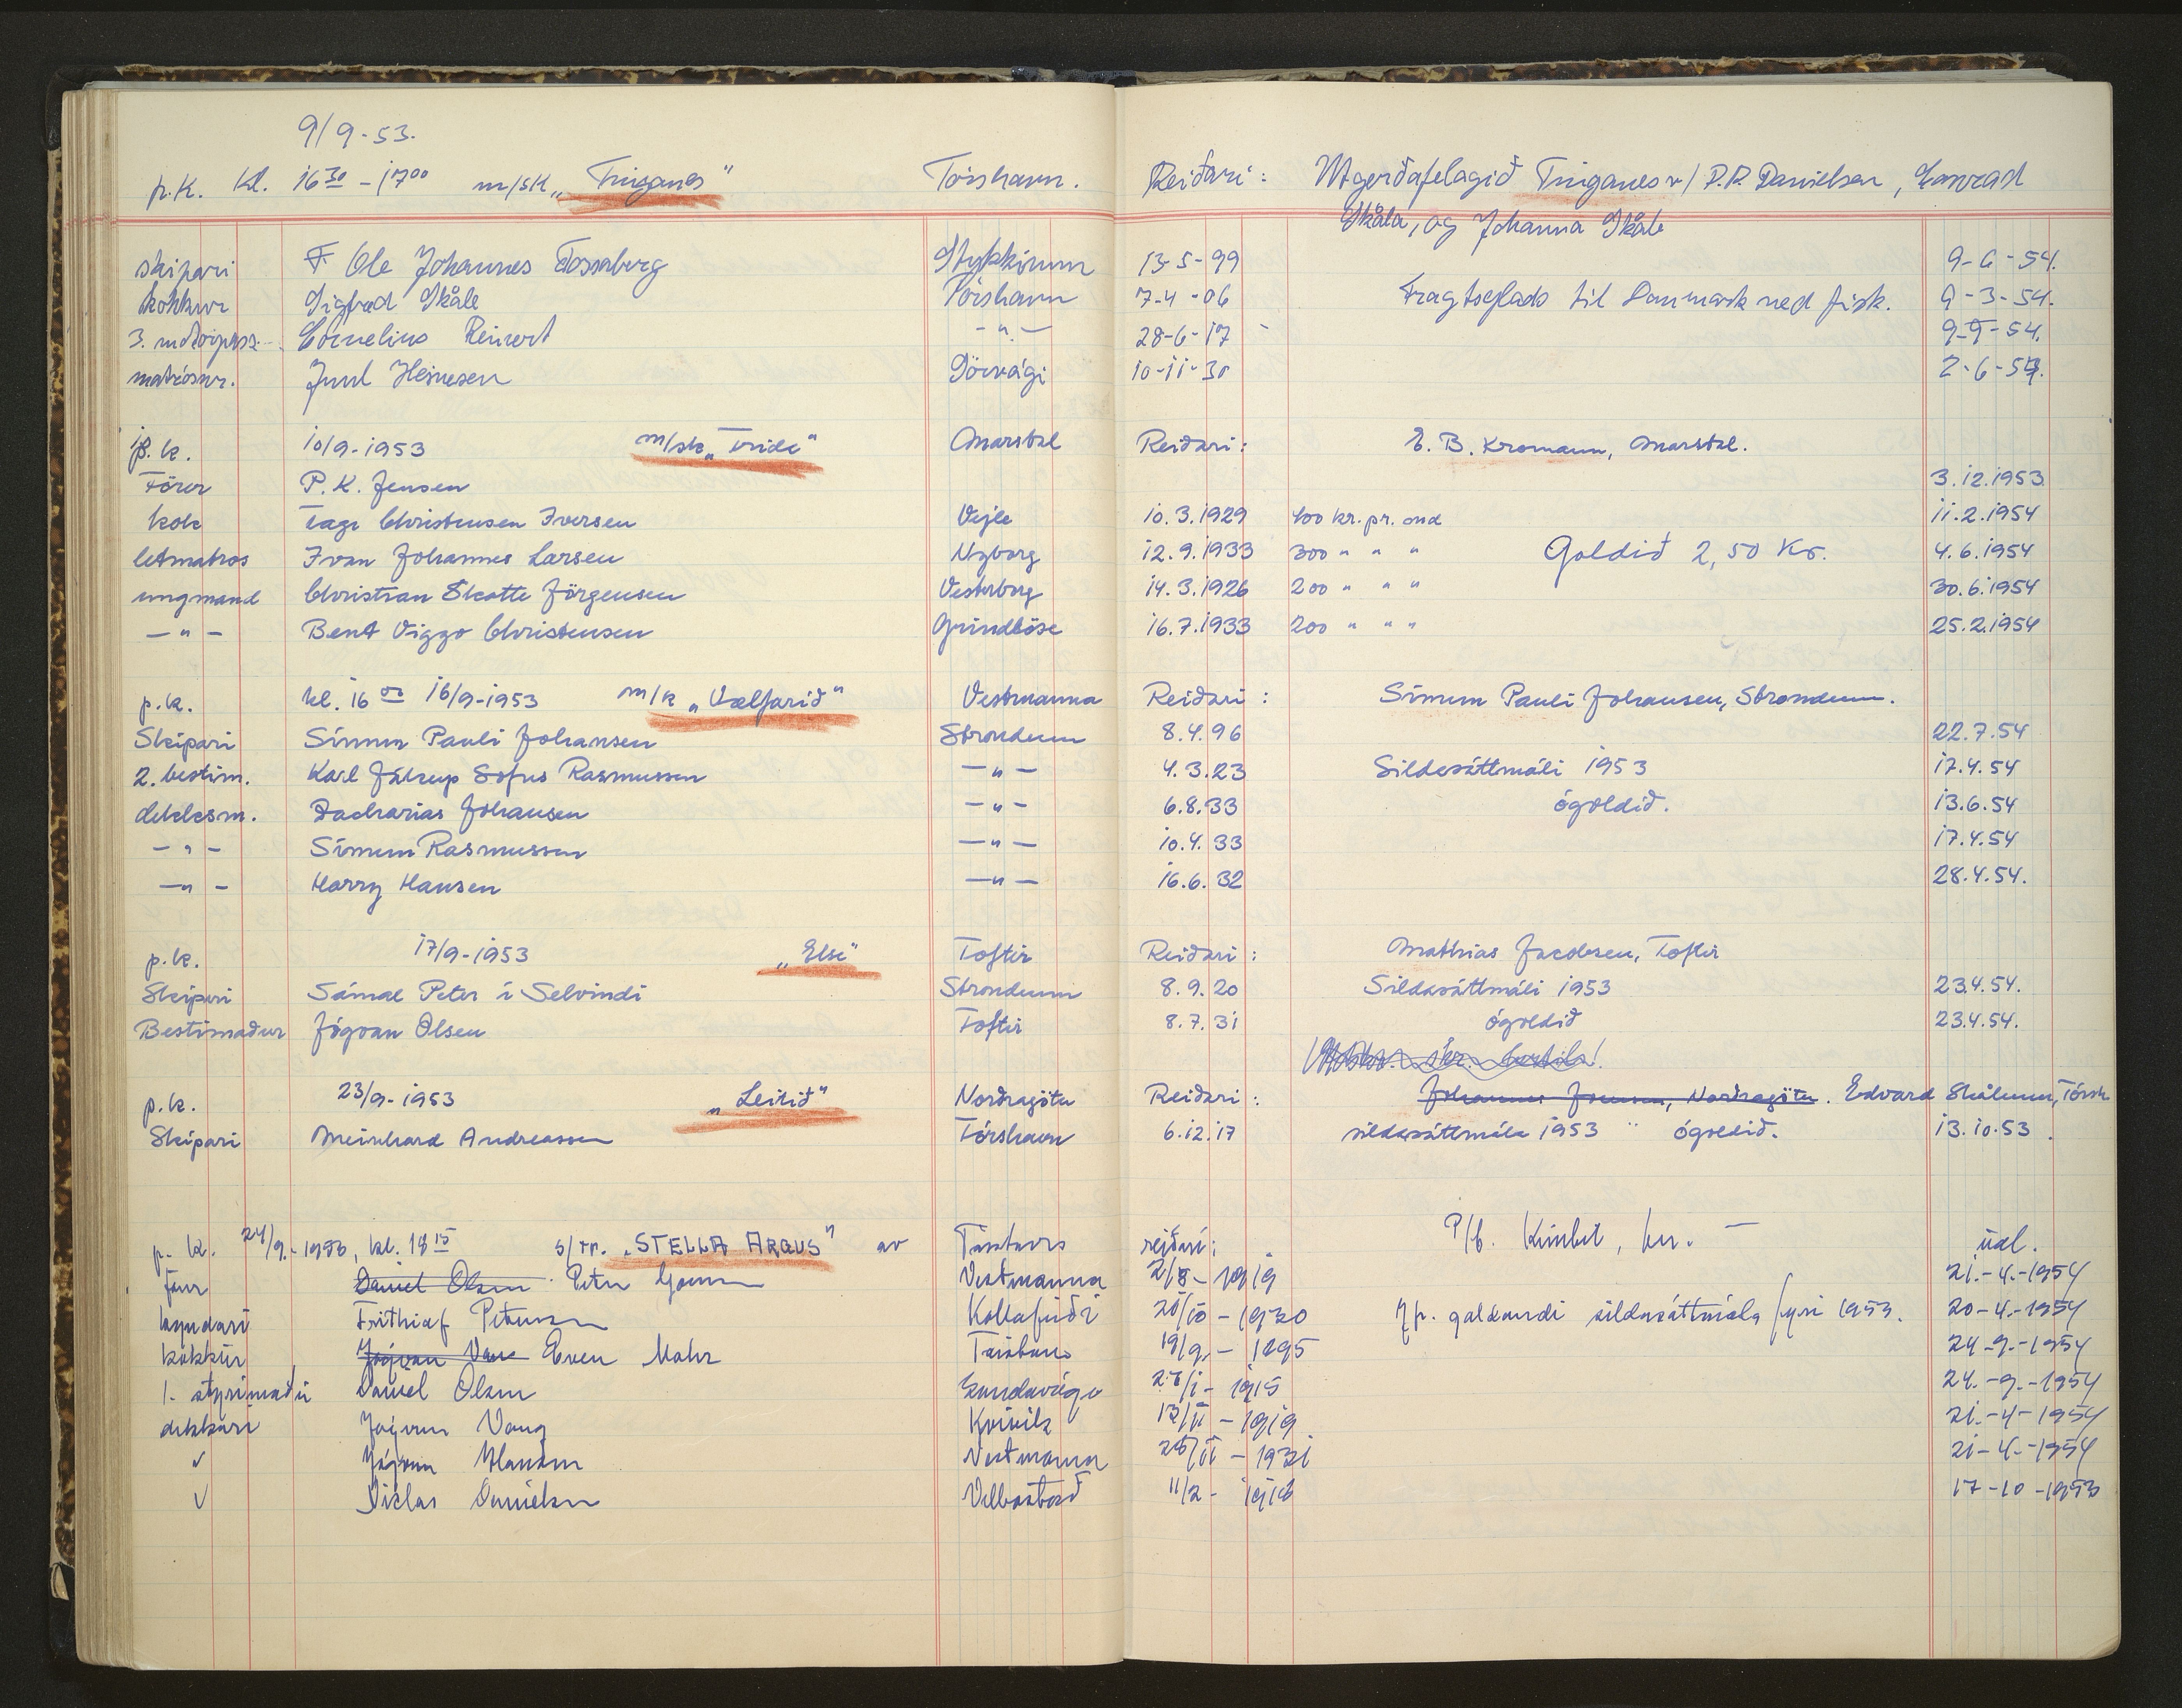 9/9-53.
p.k. kl. 16 30 - 17 00 m/sk „Tinganes" Tórshavn. Reiðari: Útgerðafelagið Tinganes v/ P.R. Danielsen,
Skála, og Johanna Skåle
skipari F Ole Johannes Fossaberg 13-5-99 9-6-54.
kokkur Sigfred Skåle Tórshavn 7-4-06 Fragtseglads til Danmark med fisk. 9-3-54.
3. motorpass. Cornelius Reinert -"- 28-6-17 9-9-54.
matrósur. Juul Heinesen Sörvági 10-11-30 2-6-54.
p.k. 10/9-1953 m/sk „Fride" Marstal Reiðari: E. B. Kromann, Marstal.
Förer P. K. Jensen 3.12.1953
kok Tage Christensen Iversen Vejle 10.3.1929 400 kr. pr. md 11.2.1954
letmatros Ivan Johannes Larsen Nyborg 12.9.1933 300 " " " Goldið 2,50 Kr. 4.6.1954
ungmand Christian Skotte Jörgensen Vesterborg 14.3.1926 200 " " " 30.6.1954
-"- Bent Viggo Christensen Grindlöse 16.7.1933 200 " " " 25.2.1954
p.k. kl. 16 00 16/9-1953 m/k „Vælfarið" Vestmanna Reiðari: Símun Pauli Johansen, Strondum.
Skipari Símun Pauli Johansen Strondum 8.4.96 22.7.54
2. bestim. Karl Jákup Sofus Rasmussen -"- 4.3.23 Sildasáttmáli 1953 17.4.54
dekksm. Zacharias Johansen -"- 6.8.33 ógoldið. 13.6.54
-"- Símun Rasmussen -"- 10.4.33 17.4.54
-"- Harry Hansen -"- 16.6.32 28.4.54.
p.k. 17/9-1953 „Else" Toftir Reiðari: Mathias Jacobsen, Toftir
Skipari Sámal Peter í Selvindi Strondum 8.9.20 Sildasáttmáli 1953 23.4.54.
Bestimaður Jógvan Olsen Toftir 8.7.31 ógoldið 23.4.54.
p.k. 23/9-1953 „Leitið" Norðragötu Reiðari: Johannes Joensen, Norðragötu. Edvard Skålum, Tórsh.
Skipari Meinhard Andreassen Tórshavn 6.12.17 sildasáttmála 1953 ógoldið. 13.10.53.
p.k. 24/9.-1953, kl. 18 15 s/tr. „STELLA ARGUS" av reiðari: P/f.
Daniel Olsen Petur Vestmanna 2/8-1919 21.-4.-1954
Frithiof Petersen Kollafirði 1930 galdandi sildasáttmála fyri 1953. 20-4.-1954
kokkur Jógvan Vang Even Mohr 19/9.-1895 24-9.-1954
1. stýrimaður Daniel Olsen Sandavági 1915 24.-9.-1954
dekkari Jógvan Vang Kvívík 1919 21.-4-1954
Jógvan Hansen Vestmanna 1931 21-4.-1954
Niclas Danielsen Velbastað 11/2-1918 17-10-1953